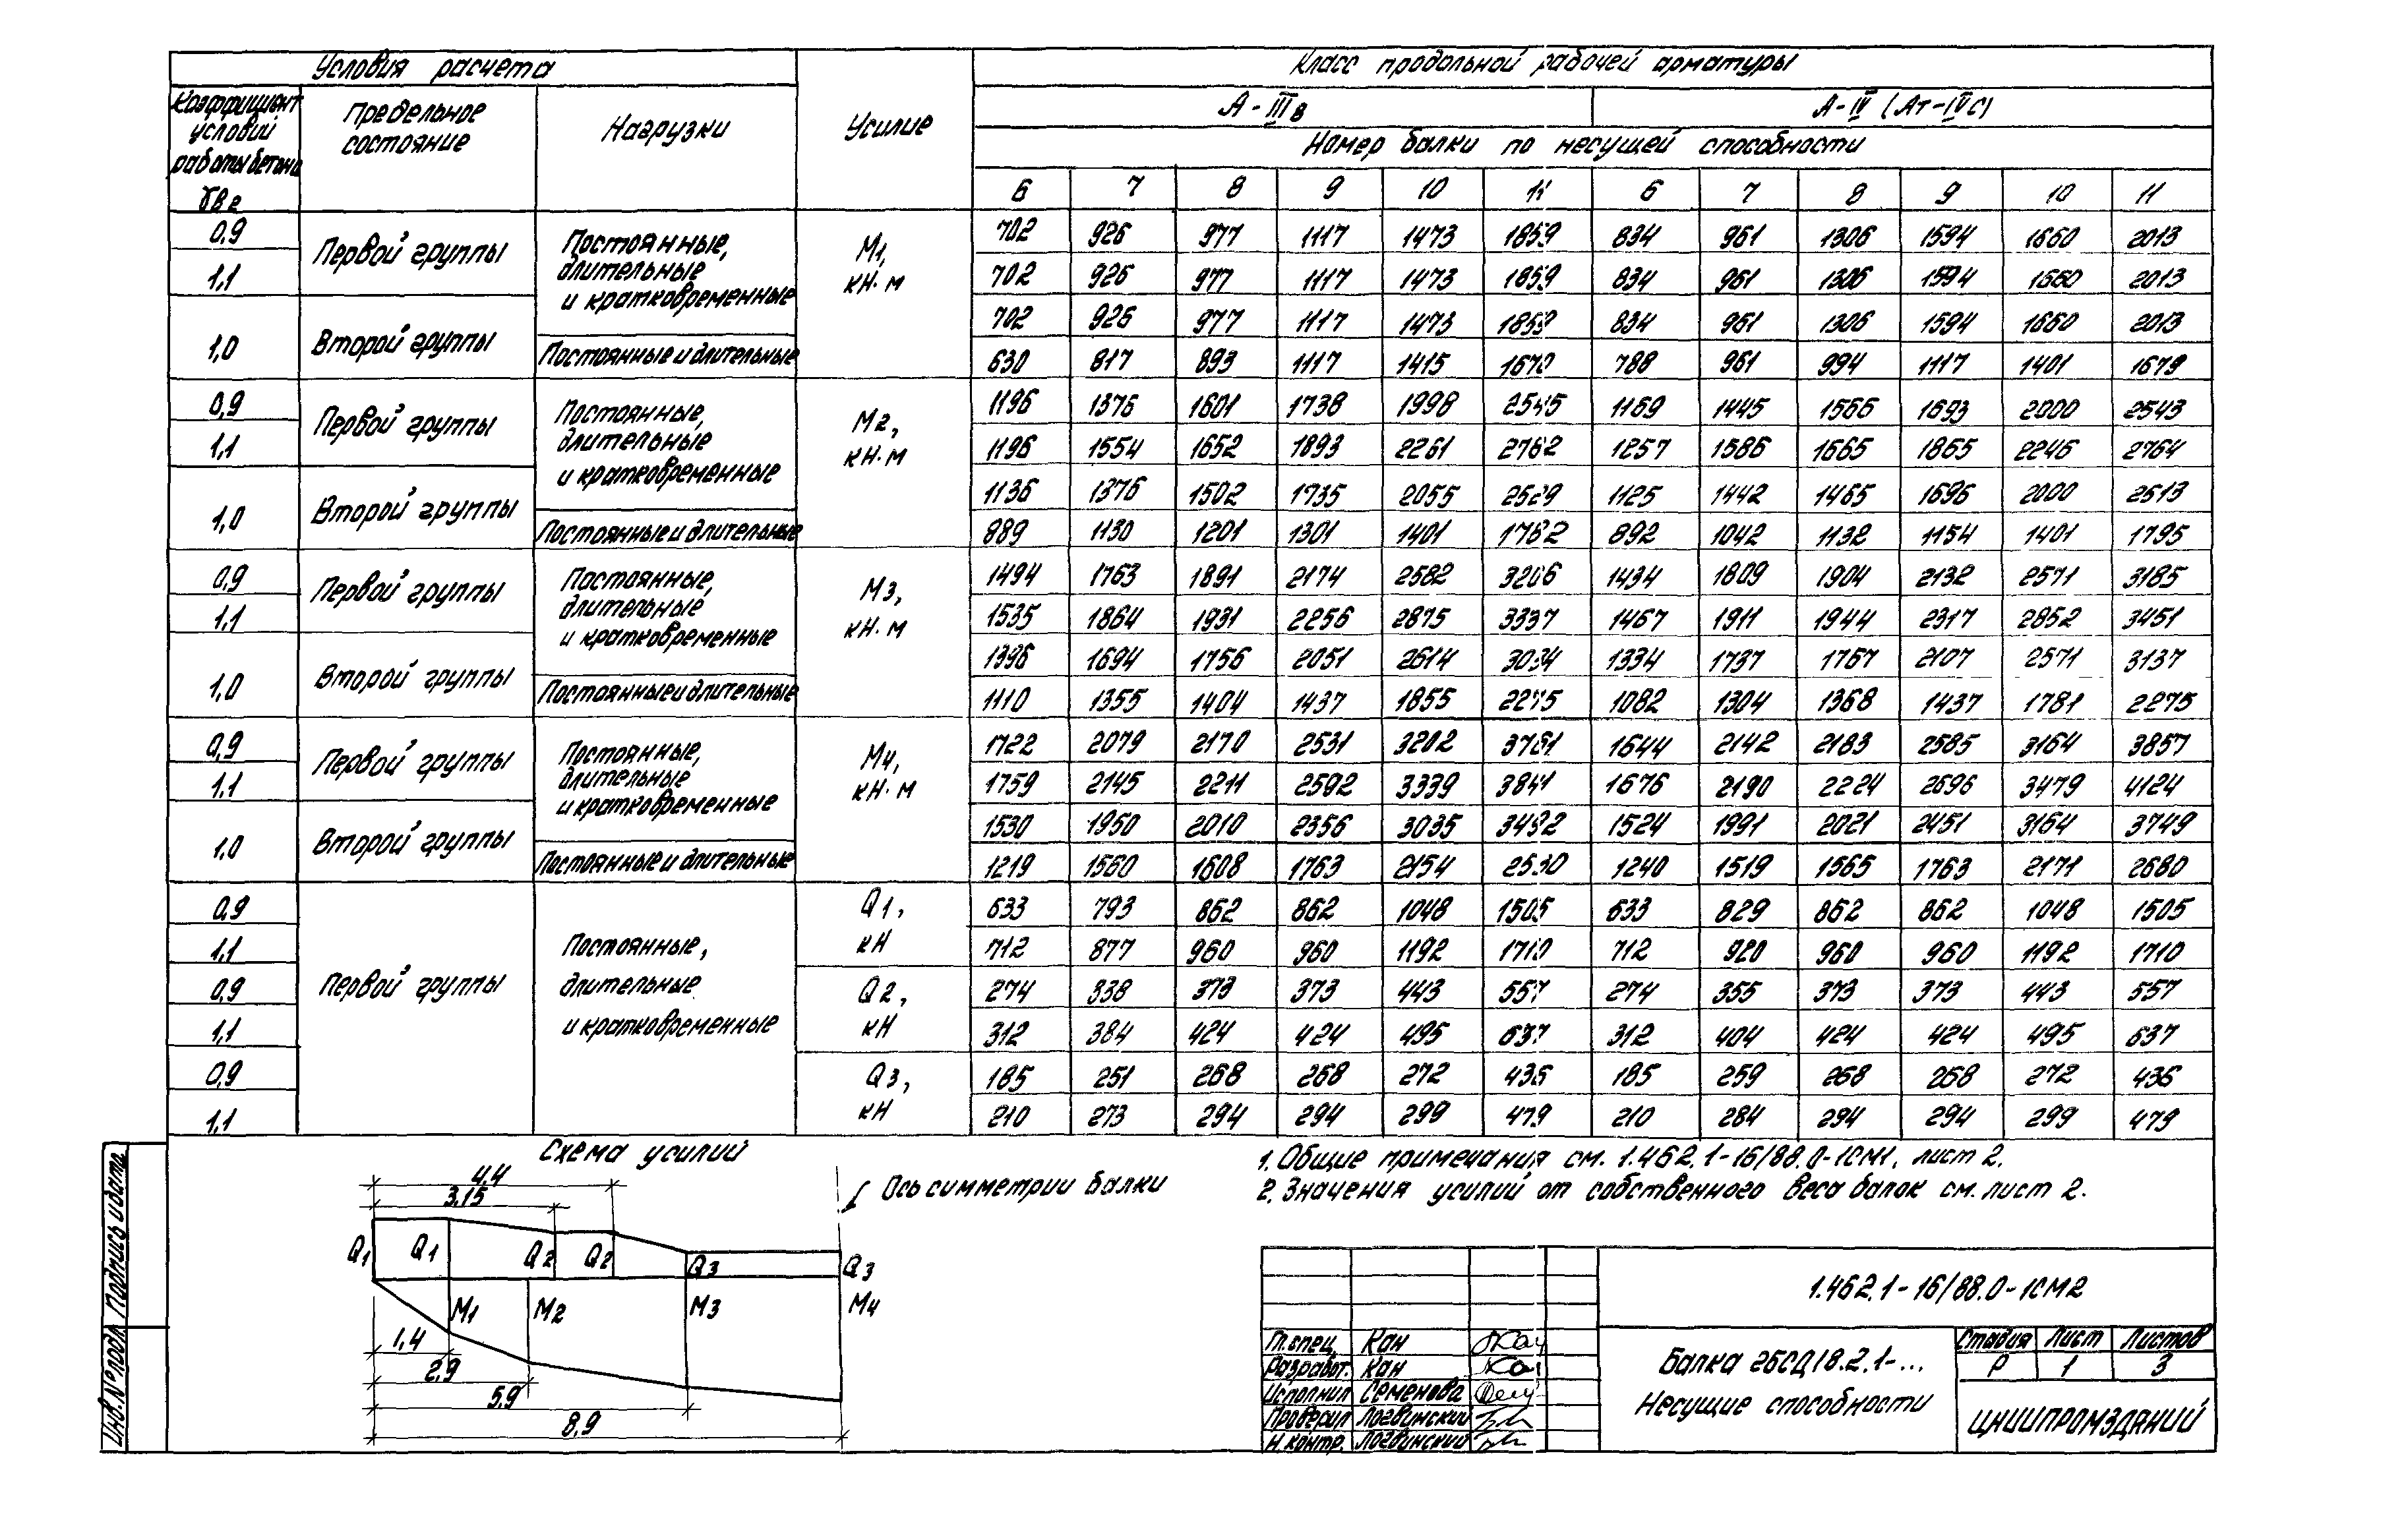 Условия расчета
Коэффициент условий работы бетона γв2
Предельное состояние
Нагрузки
Усилие
Класс продольной рабочей арматуры
А-IIIв
А-IV (Ат-IVс)
Номер балки по несущей способности
6 7 8 9 10 11 6 7 8 9 10 11
0,9 Первой группы Постоянные, длительные и кратковременные М1, кН·м 702 926 977 1117 1473 1859 834 961 1306 1594 1660 2013
1,1 702 926 977 1117 1473 1859 834 961 1306 1594 1660 2013
1,0 Второй группы 702 926 977 1117 1473 1859 834 961 1306 1594 1660 2013
Постоянные и длительные 630 817 893 1117 1415 788 961 994 1117 1401 1679
0,9 Первой группы Постоянные, длительные и кратковременные М2, кН·м 1196 1376 1601 1738 1998 1169 1445 1566 1693 2000 2543
1,1 1196 1554 1652 1893 2261 2762 1257 1586 1665 1865 2246 2764
1,0 Второй группы 1136 1376 1502 1735 2055 2529 1125 1442 1465 1696 2000 2513
Постоянные и длительные 889 1130 1201 1301 1401 1782 892 1042 1132 1154 1401 1795
0,9 Первой группы Постоянные, длительные и кратковременные М3, кН·м 1494 1763 1891 2174 2582 3206 1434 1809 1904 2132 2571 3185
1,1 1535 1864 1931 2256 2875 3337 1467 1911 1944 2317 2852 3451
1,0 Второй группы 1396 1694 1756 2051 2614 3034 1334 1737 1767 2107 2571 3137
Постоянные и длительные 1110 1355 1404 1437 1855 1082 1304 1368 1437 1781 2275
0,9 Первой группы Постоянные, длительные и кратковременные М4, кН·м 1722 2079 2170 2531 3202 3761 1644 2142 2183 2585 3164 3857
1,1 1759 2145 2211 2592 3339 3841 1676 2190 2224 2696 3479 4124
1,0 Второй группы 1530 1950 2010 2356 3035 3492 1524 1991 2021 2451 3164 3749
Постоянные и длительные 1219 1560 1608 1763 2154 2530 1240 1519 1565 1763 2171 2680
0,9 Первой группы Постоянные, длительные и кратковременные Q1, кН 633 793 862 862 1048 1505 633 829 862 862 1048 1505
1,1 712 877 960 960 1192 1710 712 920 960 960 1192 1710
0,9 Q2, кН 274 338 373 373 443 557 274 355 373 373 443 557
1,1 312 384 424 424 495 637 312 404 424 424 495 637
0,9 Q3, кН 185 251 268 268 272 436 185 259 268 268 272 436
1,1 210 273 294 294 299 479 210 284 294 294 299 479
Схема усилий
4,4
3,15
Ось симметрии балки
Q1 Q1 Q2 Q2 Q3 Q3
М1 М2 М3 М4
1,4
2,9
5,9
8,9
1. Общие примечания см. 1.462.1-16/88.0-1СМ1, лист 2.
2. Значения усилий от собственного веса балок см. лист 2.
1.462.1-16/88.0-1СМ2
Гл. спец. Кан
Разработ. Кан
Исполнил Семенова
Проверил Логвинский
Н. контр. Логвинский
Балка 2БСД18.2.1-...
Несущие способности
Стадия Лист Листов
Р 1 3
ЦНИИПРОМЗДАНИЙ
Инв.№ подл. Подпись и дата